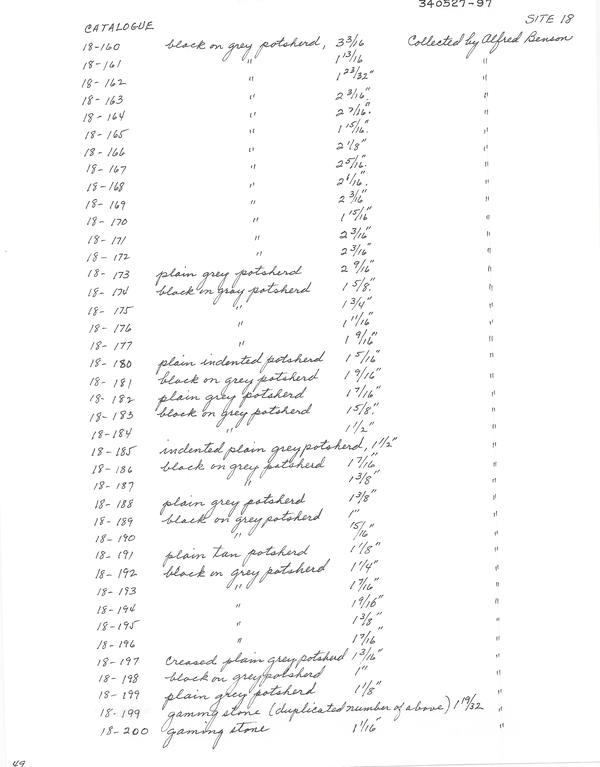 340527-97
SITE 18
CATALOGUE
18-160 black on grey potsherd, 3 3/16 Collected by Alfred Benson
18-161 " 1 13/16 "
18-162 " 1 23/32" "
18-163 " 2 3/16." "
18-164 " 2 7/16." "
18-165 " 1 15/16." "
18-166 " 2 1/8" "
18-167 " 2 5/16." "
18-168 " 2 1/16." "
18-169 " 2 3/16" "
18-170 " 1 15/16" "
18-171 " 2 3/16" "
18-172 " 2 3/16" "
18-173 plain grey potsherd 2 9/16" "
18-174 black on gray potsherd 1 5/8." "
18-175 " 1 3/4" "
18-176 " 1 11/16" "
18-177 " 1 9/16" "
18-180 plain indented potsherd 1 5/16" "
18-181 black on grey potsherd 1 9/16" "
18-182 plain grey potsherd 1 7/16" "
18-183 black on grey potsherd 1 5/8." "
18-184 " 1 1/2" "
18-185 indented plain grey potsherd, 1 1/2" "
18-186 black on grey potsherd 1 7/16" "
18-187 " 1 3/8" "
18-188 plain grey potsherd 1 3/8" "
18-189 black on grey potsherd 1" "
18-190 " 15/16" "
18-191 plain tan potsherd 1 1/8" "
18-192 black on grey potsherd 1 1/4" "
18-193 " 1 7/16" "
18-194 " 1 9/16" "
18-195 " 1 3/8" "
18-196 " 1 7/16 "
18-197 creased plain grey potsherd 1 3/16" "
18-198 black on grey potsherd 1" "
18-199 plain grey potsherd 1 1/8" "
18-199 gaming stone (duplicated number of above) 1 19/32 "
18-200 gaming stone 1 1/16" "
49